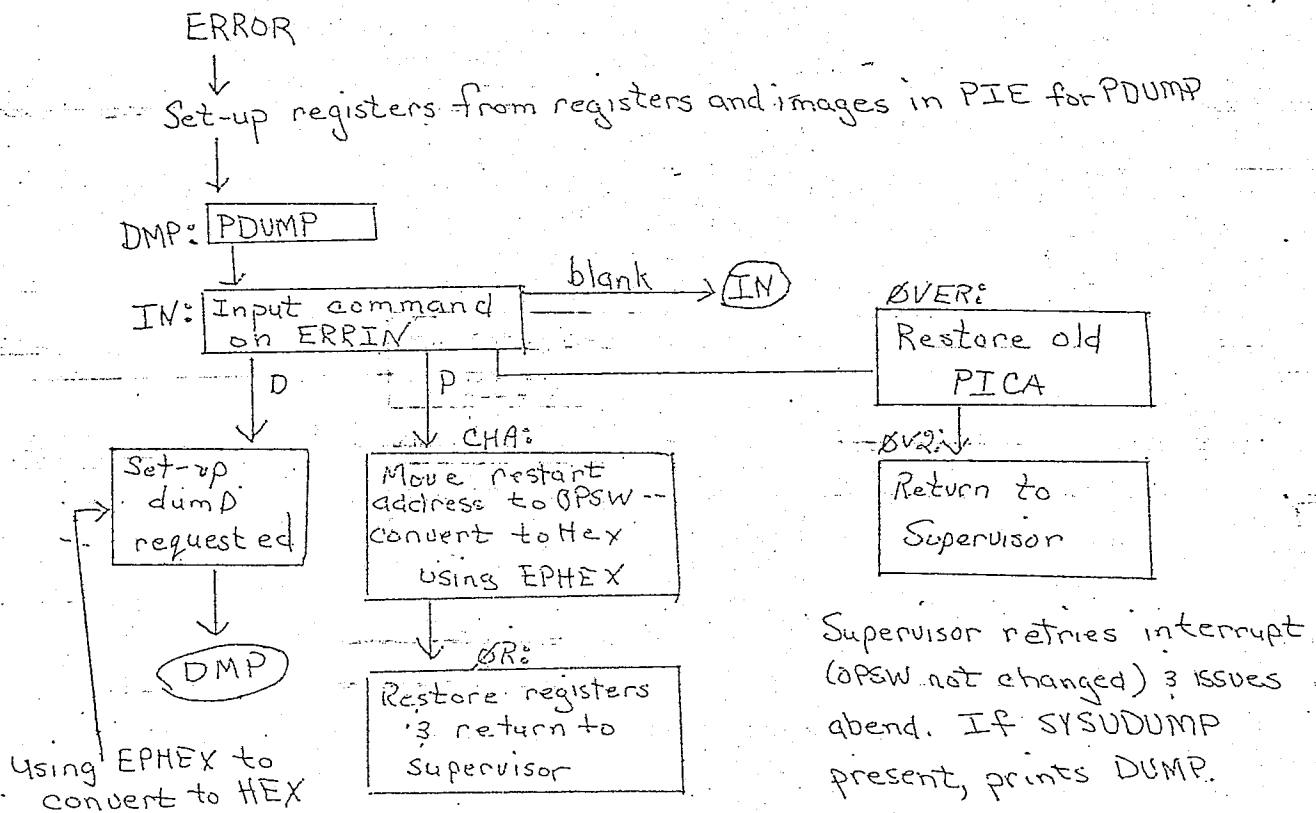 ERROR
Set-up registers from registers and images in PIE for PDUMP
DMP: PDUMP
IN: Input command
on ERRIN
blank
IN
D
P
ØVER:
Restore old
PICA
ØV2:
Return to
Supervisor
Set-up
dump
requested
DMP
Using EPHEX to
convert to HEX
CHA:
Move restart
address to OPSW --
convert to Hex
using EPHEX
ØR:
Restore registers
& return to
supervisor
Supervisor retries interrupt
(OPSW not changed) & issues
abend. If SYSUDUMP
present, prints DUMP.